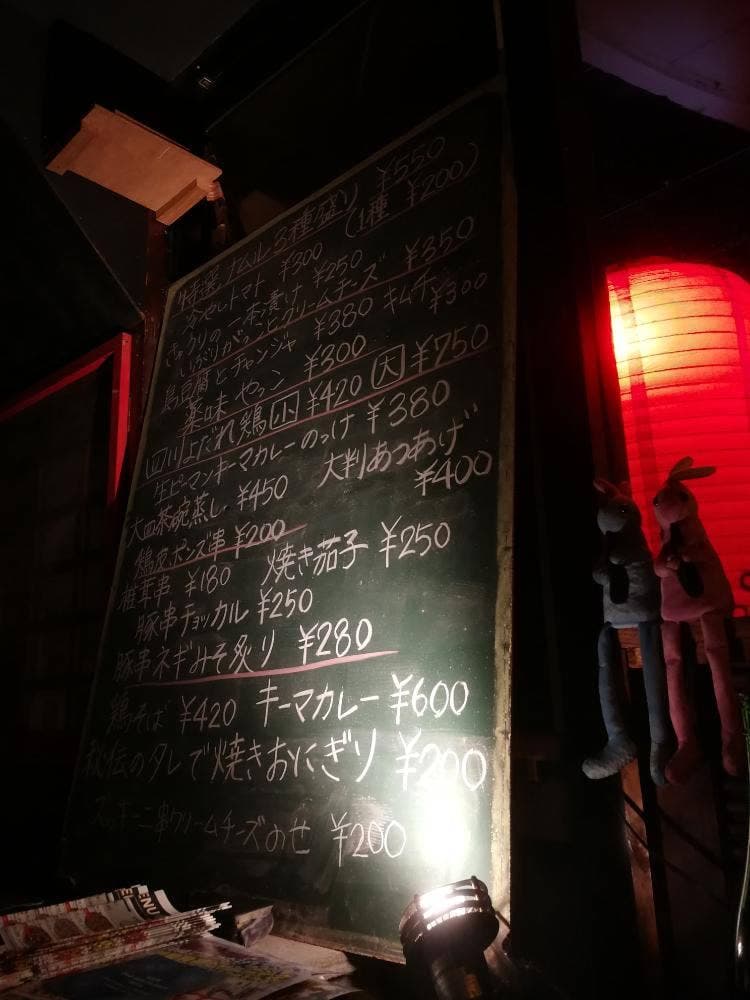 特選ナムル3種盛り ¥550
(1種 ¥200)
冷やしトマト ¥300
きゅうりの一本漬け ¥250
いぶりがっことクリームチーズ ¥350
島豆腐とチャンジャ ¥380 キムチ ¥300
薬味やっこ ¥300
四川よだれ鶏 小 ¥420 大 ¥750
生ピーマンキーマカレーのっけ ¥380
大皿茶碗蒸し ¥450 大判あつあげ ¥400
鶏皮ポンズ串 ¥200
椎茸串 ¥180 焼き茄子 ¥250
豚串チョッカル ¥250
豚串ネギみそ炙り ¥280
鶏そば ¥420 キーマカレー ¥600
秘伝のタレで焼きおにぎり ¥200
ズッキーニ串クリームチーズのせ ¥200
MENU